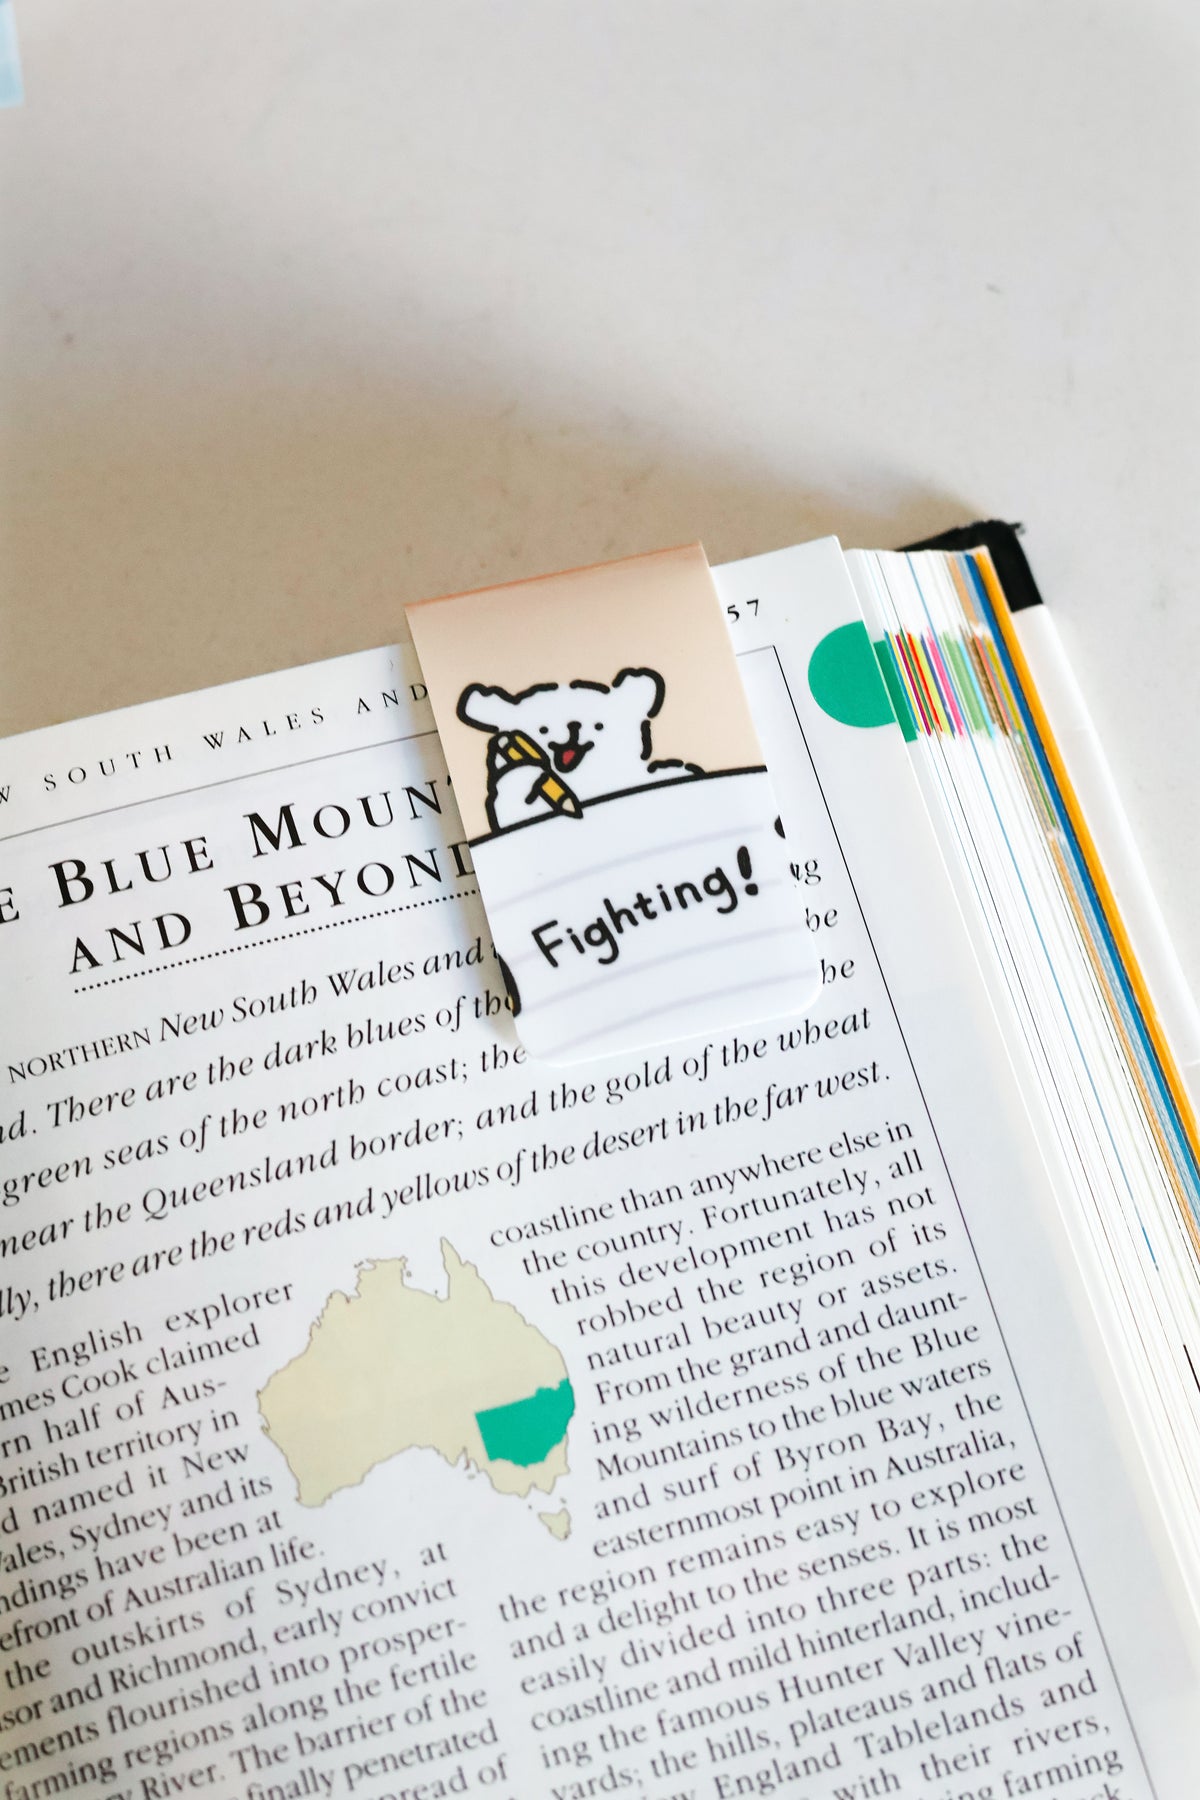 SOUTH WALES AND
57
BLUE
AND BEYOND
Fighting!
NORTHERN New South Wales and
There are the dark blues of the
green seas of the north coast; the
near the Queensland border; and the gold of the wheat
there are the reds and yellows of the desert in the far west.
English explorer
Cook claimed
half of Aus-
British territory in
named it New
Sydney and its
have been at
of Australian life.
the outskirts of Sydney, at
and Richmond, early convict
flourished into prosper-
farming regions along the fertile
River. The barrier of the
finally penetrated
of
coastline than anywhere else in
the country. Fortunately, all
this development has not
robbed the region of its
natural beauty or assets.
From the grand and daunt-
ing wilderness of the Blue
Mountains to the blue waters
and surf of Byron Bay, the
easternmost point in Australia,
the region remains easy to explore
and a delight to the senses. It is most
easily divided into three parts: the
coastline and mild hinterland, includ-
ing the famous Hunter Valley vine-
yards; the hills, plateaus and flats of
England Tablelands and
with their rivers,
farming